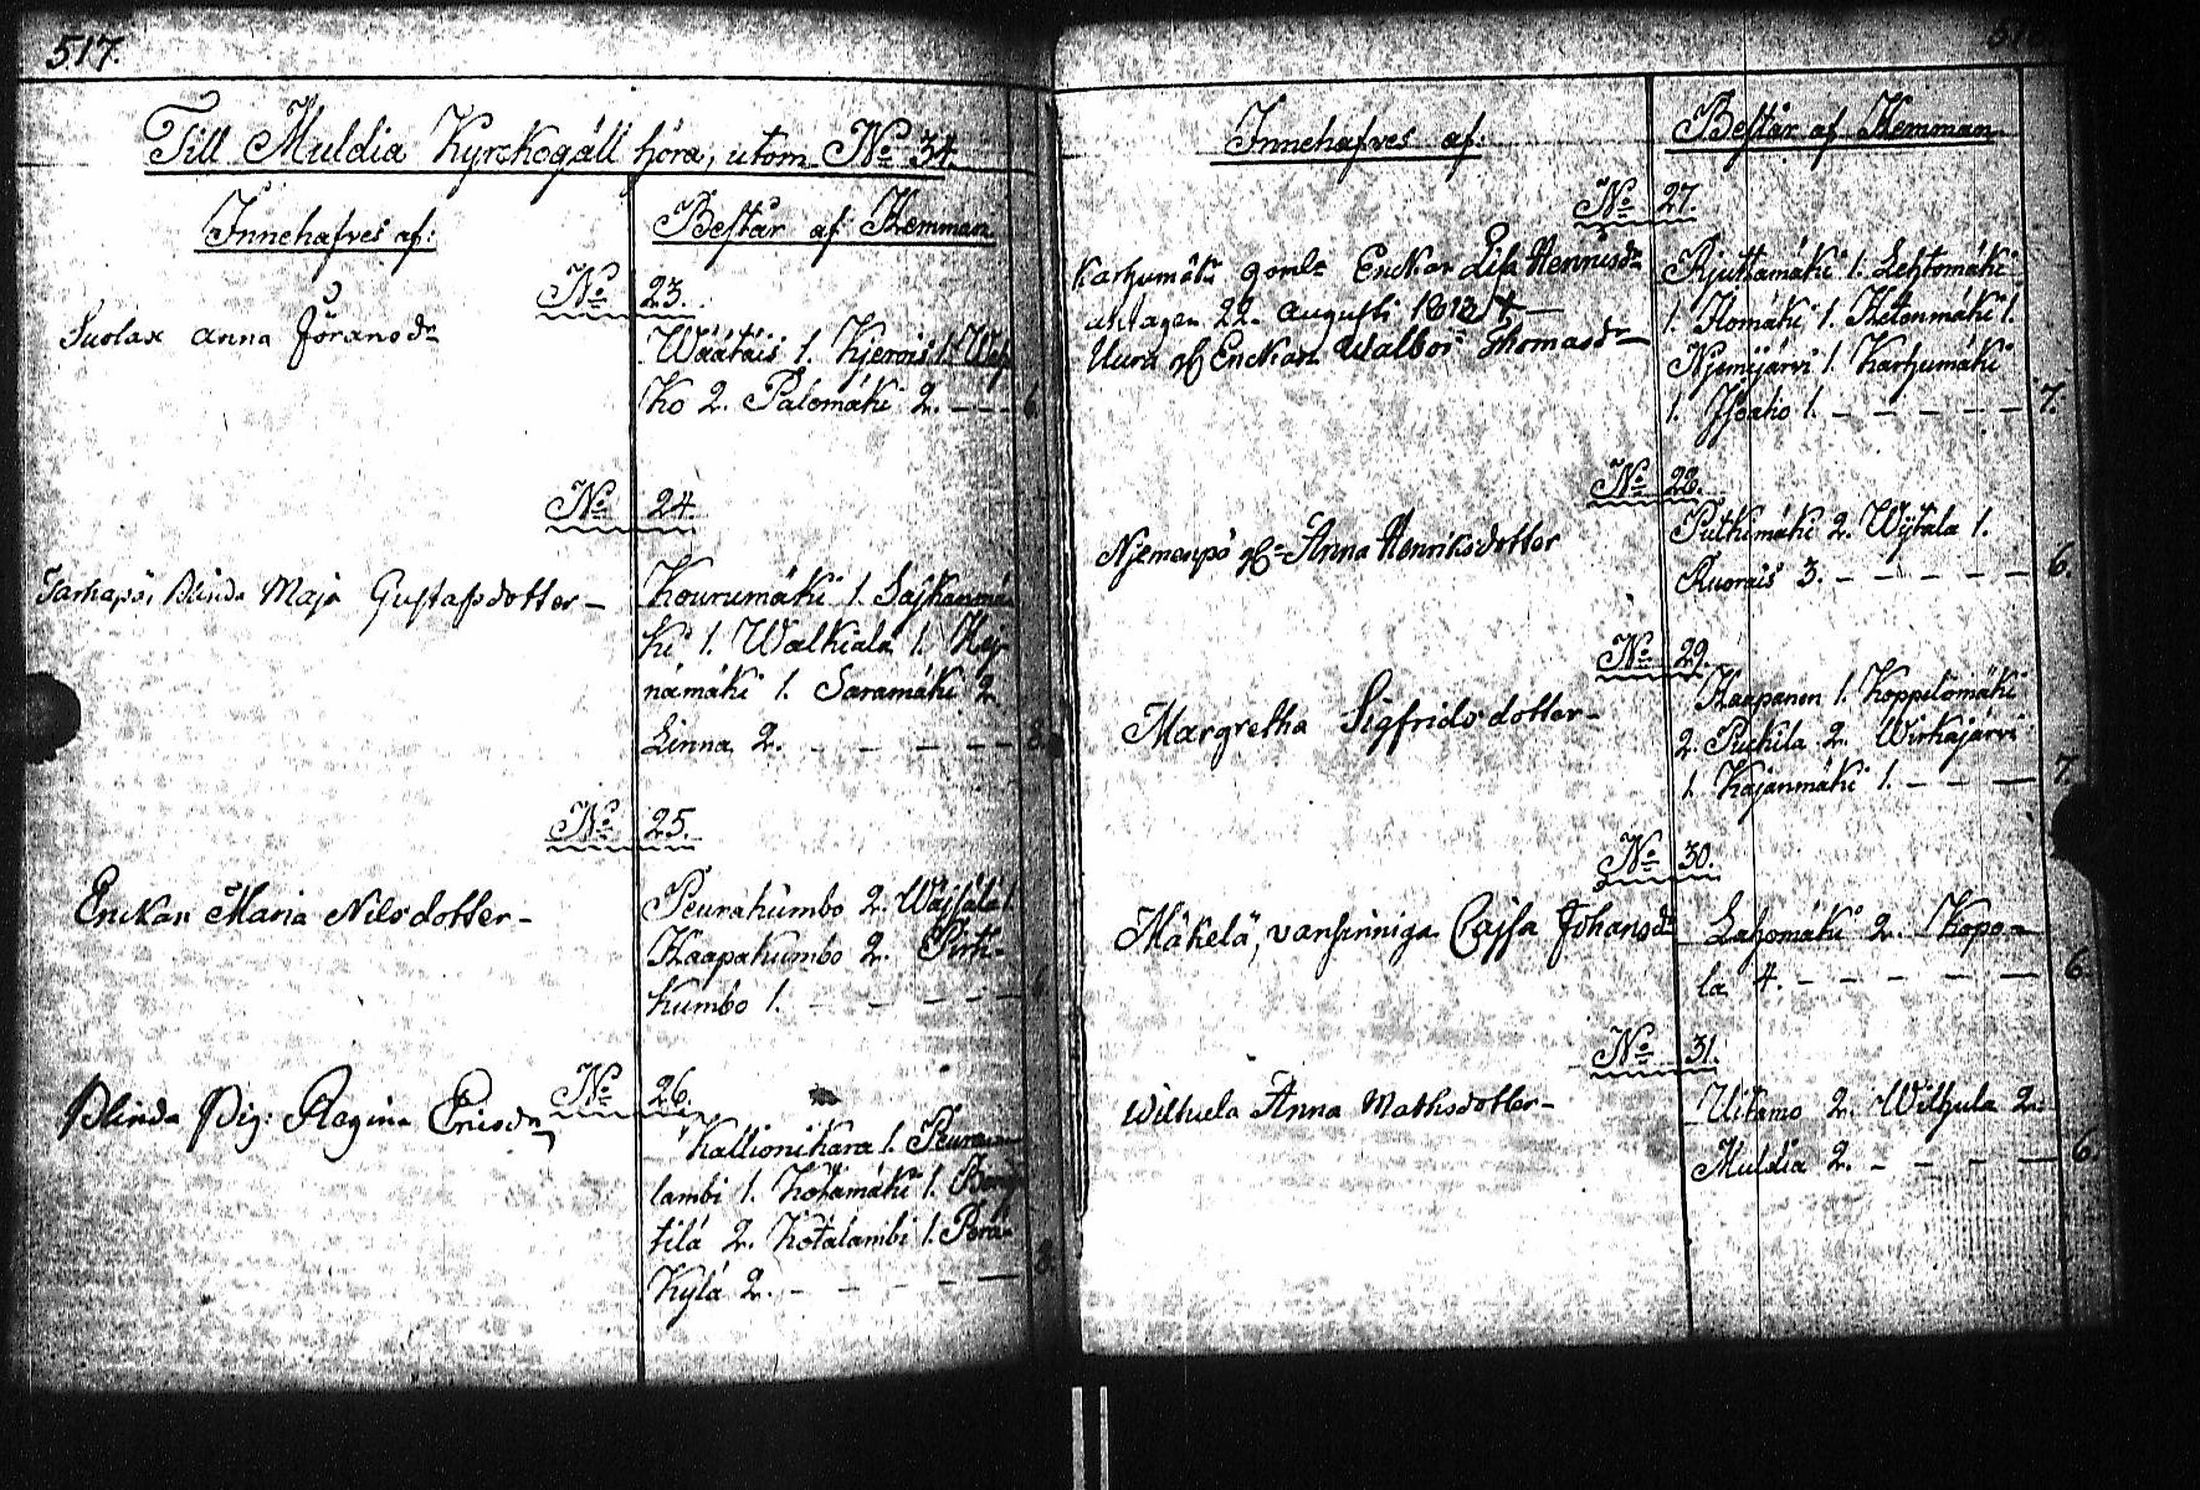 517.
Till Muldia Kyrckogäll höra, utom No 34.
Innehafves af:
Bestar af Hemman
No 23.
Suolax Anna Jöransdr
Wäätäis 1. Kjerois 1. Weh
ko 2. Palomäki 2. - - - 6.
No 24.
Tarhapä, Blinda Maja Gustafsdotter -
Kourumäki 1. Sajkanmä
ki 1. Walkiala 1. Hej
nämäki 1. Saramäki 2.
Linna 2. - - - - - 8.
No 25.
Enckan Maria Nilsdotter -
Peurakumbo 2. Wäjsälä 1.
Haapakumbo 2. Pirt-
kumbo 1. - - - - - 6.
No 26.
Blinda Pig: Regina Ericsdr
Kallionikara 1. Peura
lambi 1. Kotamäki 1. Beng
tilä 2. Kotalambi 1. Perä-
kylä 2. - - - - - 8.
Innehafves af:
Består af Hemman
No 27.
Karhumäki gamla Enckan Lisa Hennisdr
antagen 22. Augusti 1813 † -
Uura Enckan Walbor Thomasdr -
Rjuttamäki 1. Lehtomäki
1. Ilomäki 1. Ketonmäki 1.
Njemijärvi 1. Karhumäki
1. Isoaho 1. - - - - - 7.
No 28.
Njemenpä Anna Henriksdotter
Putkimäki 2. Wijtala 1.
Ruorais 3. - - - - - 6.
No 29.
Margretha Sigfridsdotter -
Haapanen 1. Koppelomäki
2. Puckila 2. Wirkajärvi
1. Kajanmäki 1. - - - 7.
No 30.
Mäkelä, vansinniga Cajsa Johansdr
Lahomäki 2. Kopo-
la 4. - - - - - 6.
No 31.
Wilhuela Anna Mathsdotter -
Uitamo 2. Wilhula 2.
Muldia 2. - - - - 6.